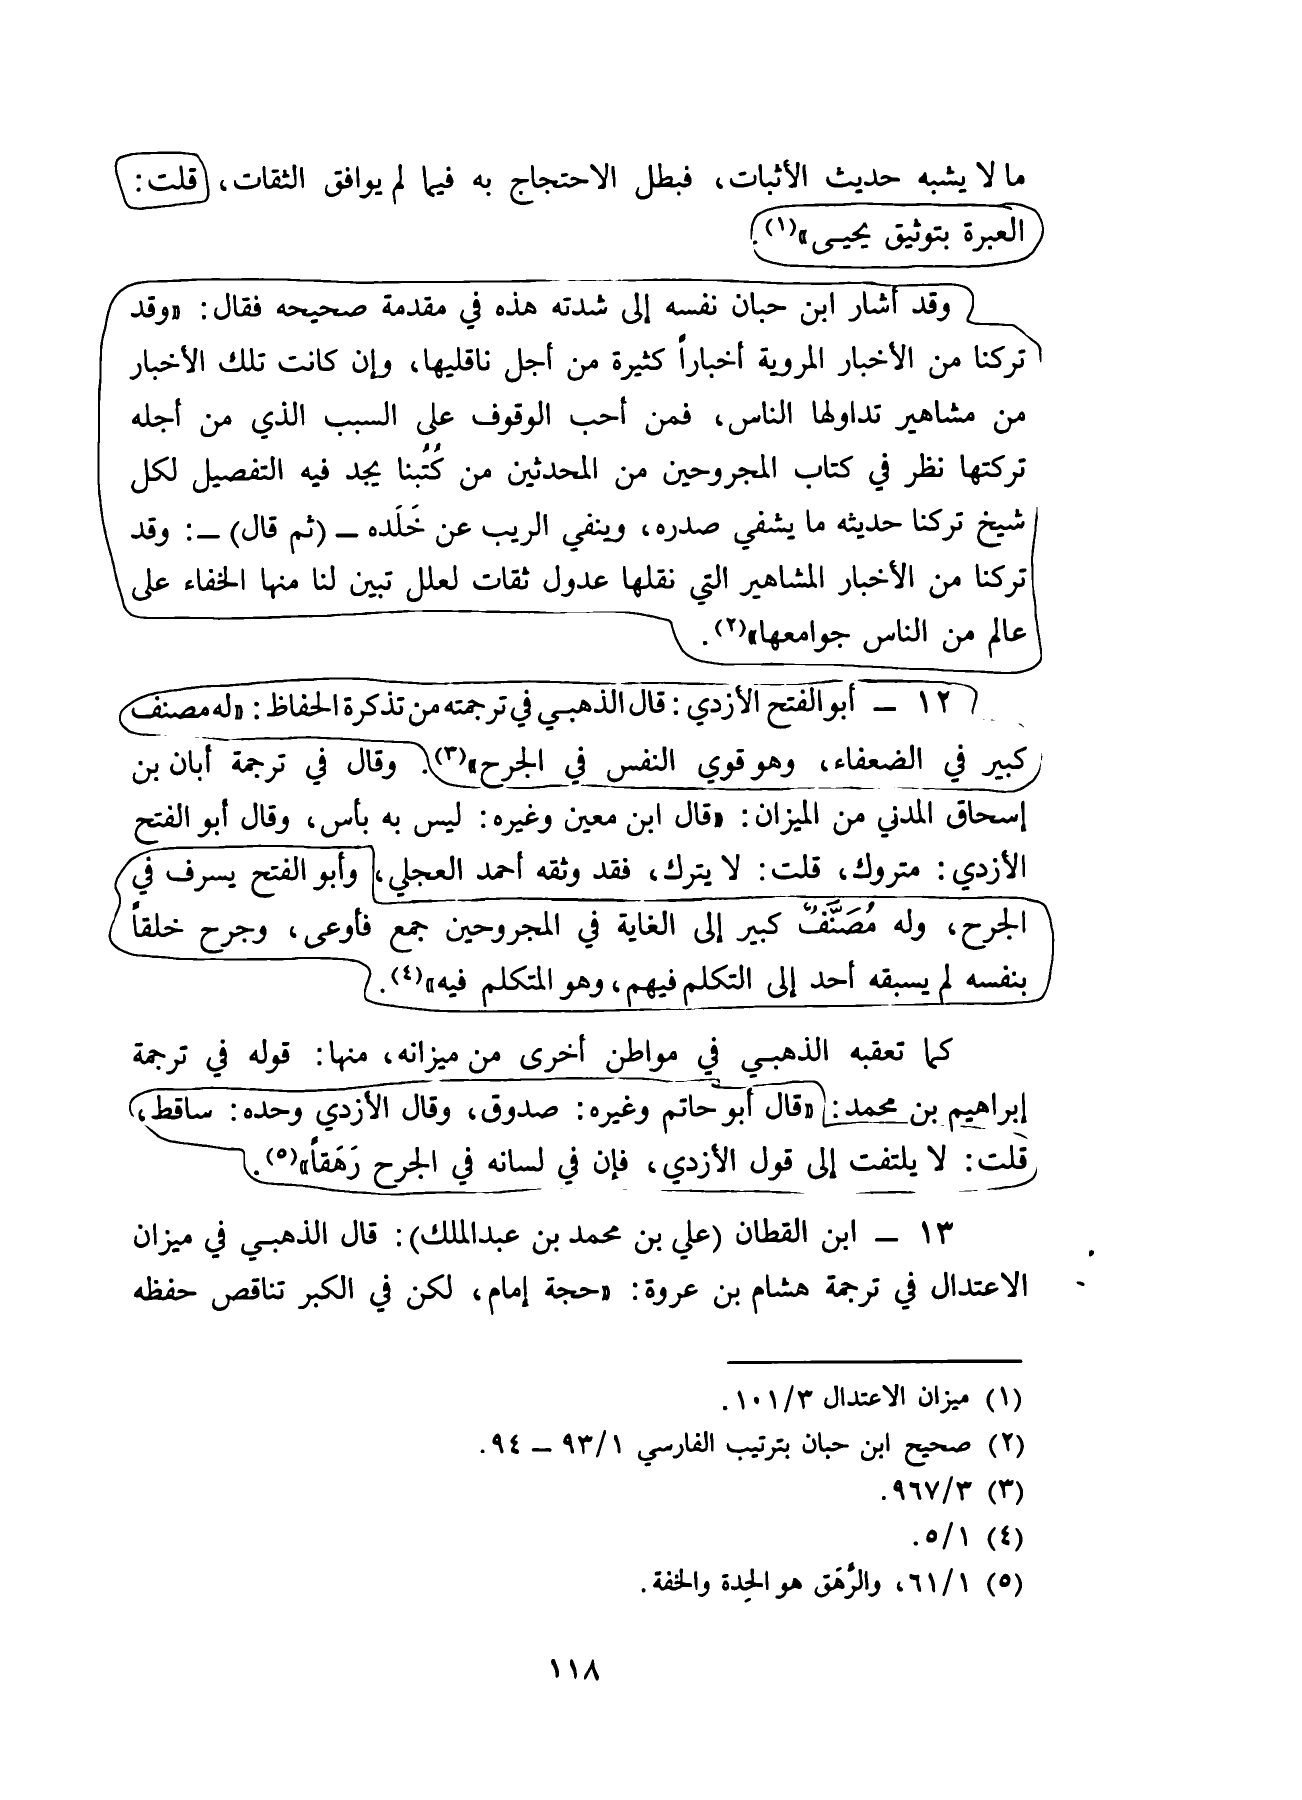 ما لا يشبه حديث الأثبات، فبطل الاحتجاج به فيما لم يوافق الثقات، قلت:
العبرة بتوثيق يحيى»(١).
وقد أشار ابن حبان نفسه إلى شدته هذه في مقدمة صحيحه فقال: «وقد
تركنا من الأخبار المروية أخباراً كثيرة من أجل ناقليها، وإن كانت تلك الأخبار
من مشاهير تداولها الناس، فمن أحب الوقوف على السبب الذي من أجله
تركتها نظر في كتاب المجروحين من المحدثين من كُتُبنا يجد فيه التفصيل لكل
شيخ تركنا حديثه ما يشفي صدره، وينفي الريب عن خَلَده ــ (ثم قال) ــ: وقد
تركنا من الأخبار المشاهير التي نقلها عدول ثقات لعلل تبين لنا منها الخفاء على
عالم من الناس جوامعها»(٢).
١٢ ــ أبو الفتح الأزدي: قال الذهبي في ترجمته من تذكرة الحفاظ: «له مصنف
كبير في الضعفاء، وهو قوي النفس في الجرح»(٣). وقال في ترجمة أبان بن
إسحاق المدني من الميزان: «قال ابن معين وغيره: ليس به بأس، وقال أبو الفتح
الأزدي: متروك، قلت: لا يترك، فقد وثقه أحمد العجلي، وأبو الفتح يسرف في
الجرح، وله مُصَنَّفٌ كبير إلى الغاية في المجروحين جمع فأوعى، وجرح خلقاً
بنفسه لم يسبقه أحد إلى التكلم فيهم، وهو المتكلم فيه»(٤).
كما تعقبه الذهبي في مواطن أخرى من ميزانه، منها: قوله في ترجمة
إبراهيم بن محمد: «قال أبو حاتم وغيره: صدوق، وقال الأزدي وحده: ساقط،
قلت: لا يلتفت إلى قول الأزدي، فإن في لسانه في الجرح رَهَقاً»(٥).
١٣ ــ ابن القطان (علي بن محمد بن عبدالملك): قال الذهبي في ميزان
الاعتدال في ترجمة هشام بن عروة: «حجة إمام، لكن في الكبر تناقص حفظه
(١) ميزان الاعتدال ١٠١/٣.
(٢) صحيح ابن حبان بترتيب الفارسي ٩٣/١ ــ ٩٤.
(٣) ٩٦٧/٣.
(٤) ٥/١.
(٥) ٦١/١، والرَّهَق هو الحِدة والخفة.
١١٨